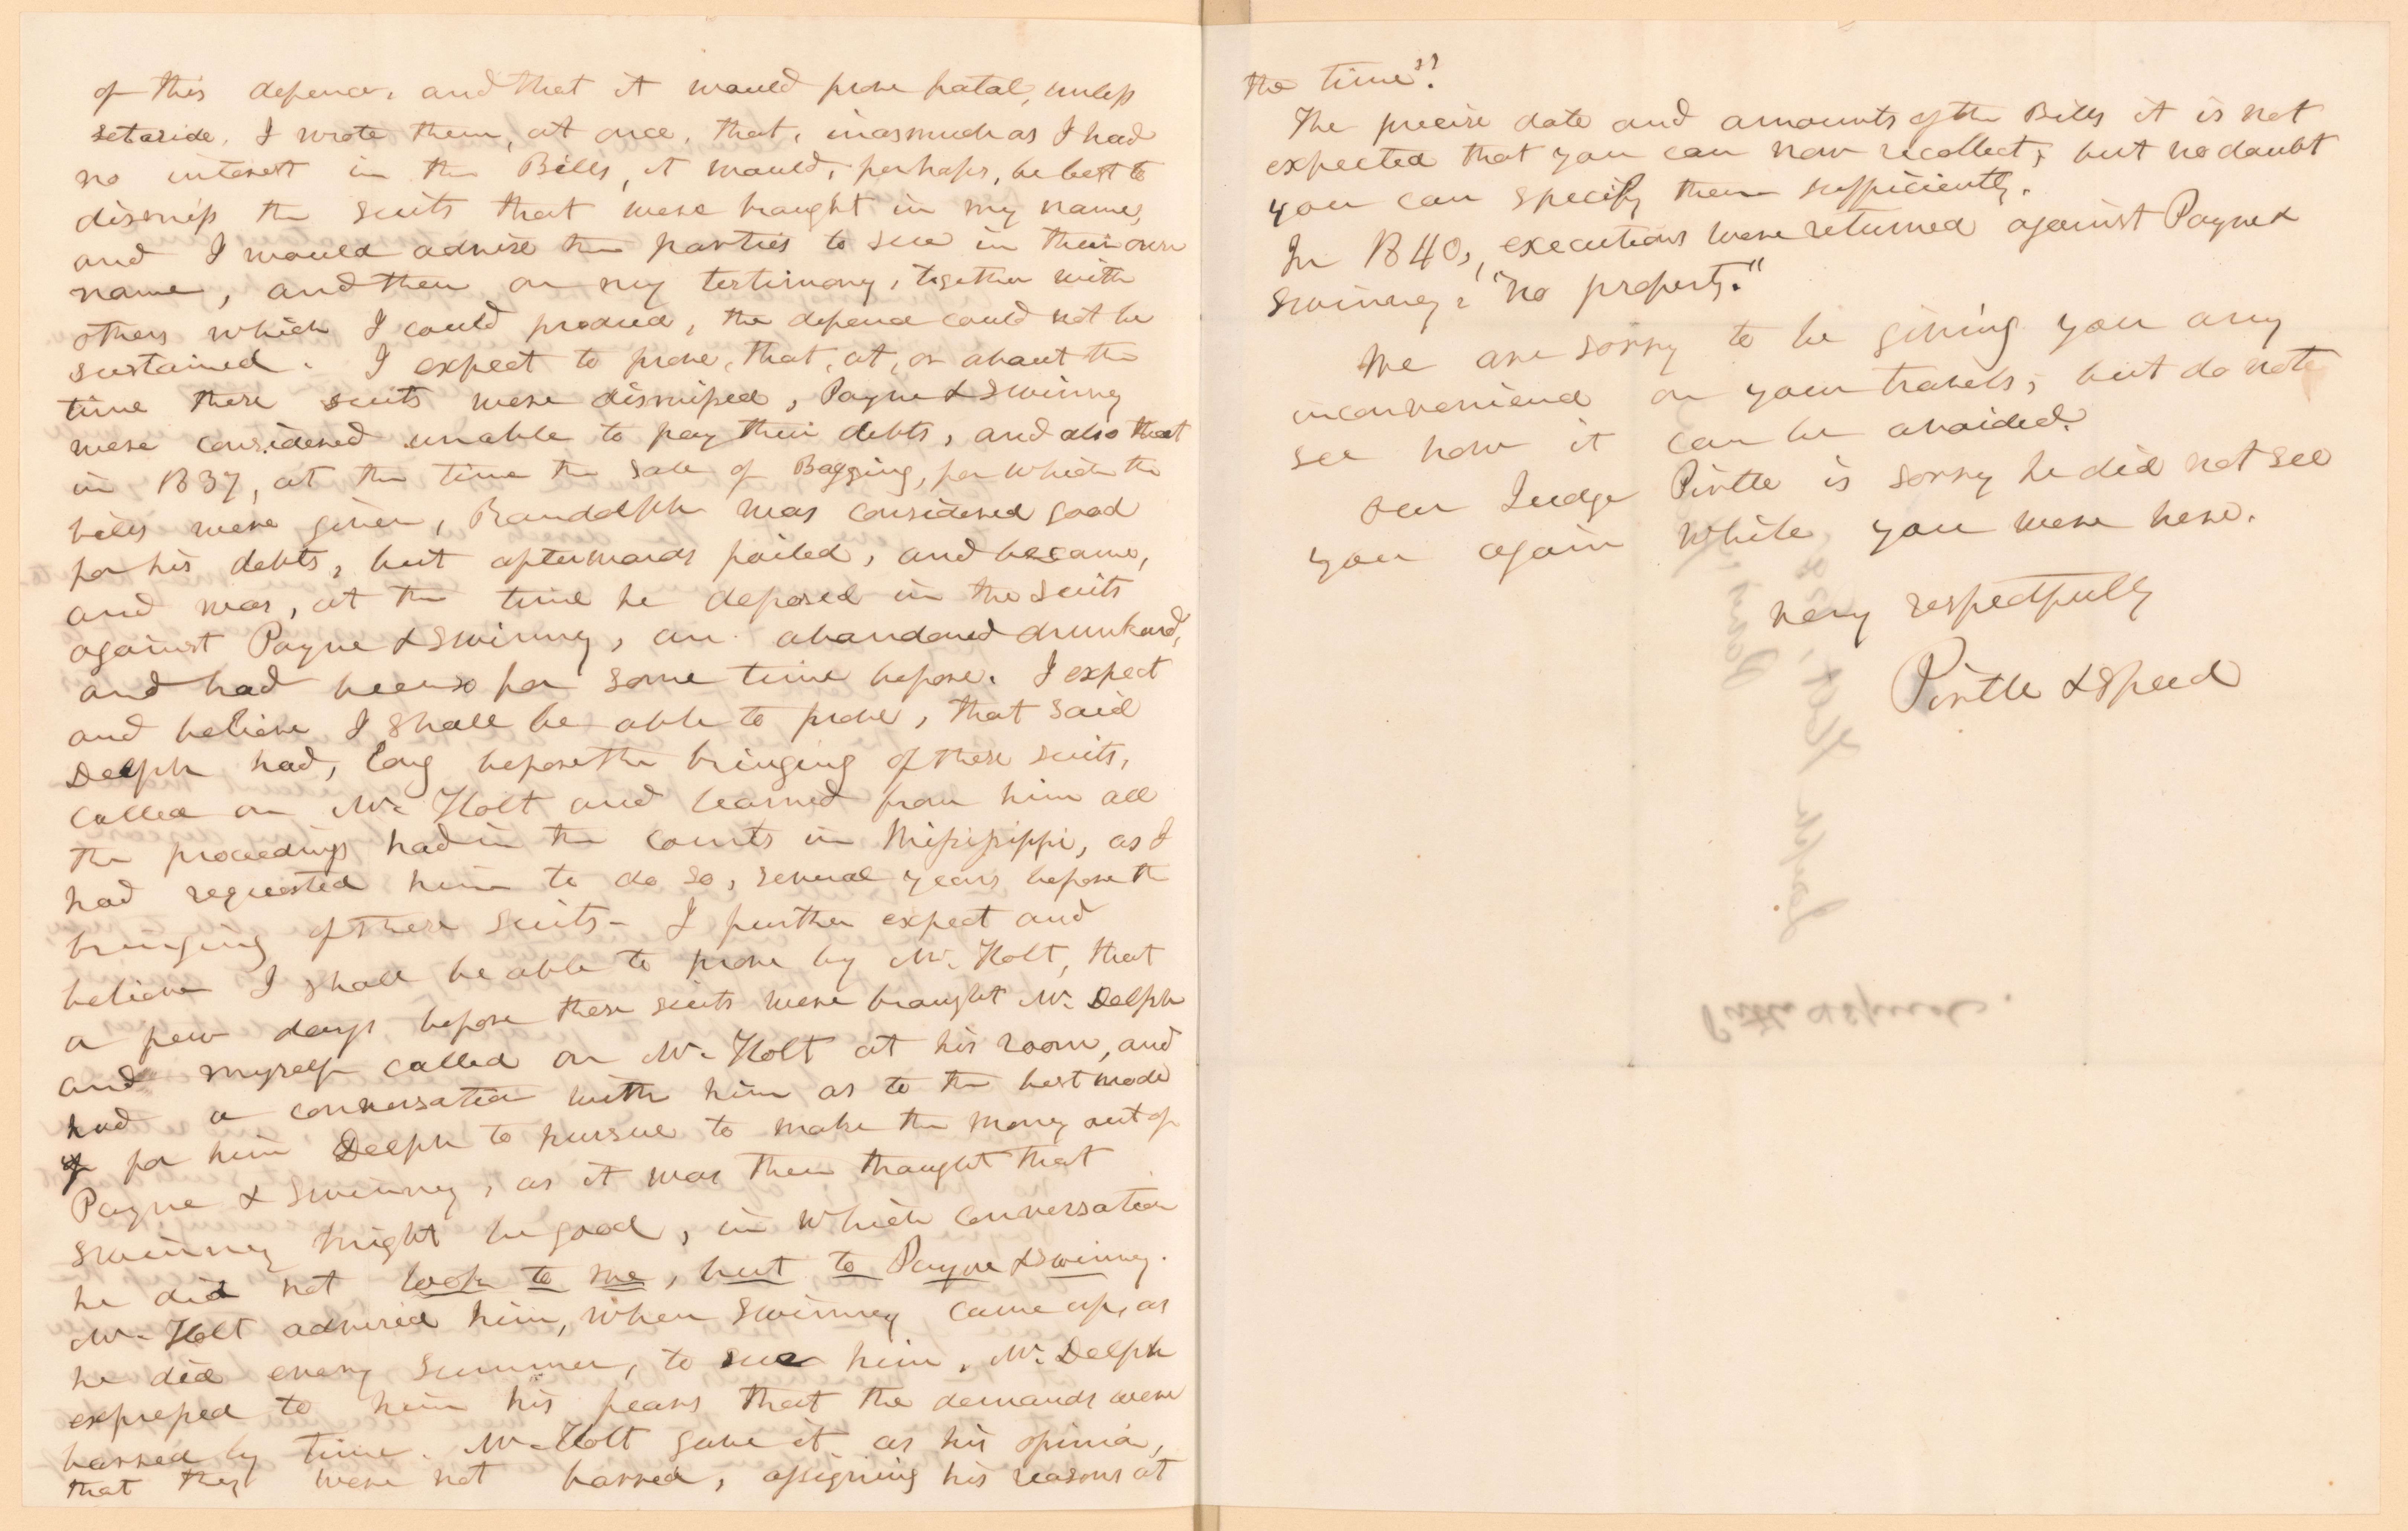 of this defence, and that it would prove fatal, unless
set aside. I wrote them, at once, that, inasmuch as I had
no interest in the Bills, it would, perhaps, be best to
dismiss the suits that were brought in my name,
and I would advise the parties to sue in their own
name, and then on my testimony, together with
others which I could produce, the defence could not be
sustained. I expect to prove, that, at, or about the
time these suits were dismissed, Payne & Swinney
were considered unable to pay their debts, and also that
in 1837, at the time the sale of Bagging, for which the
bills were given, Randolph was considered good
for his debts, but afterwards failed, and became,
and was, at the time he deposed in the suits
against Payne & Swinney, an abandoned drunkard,
and had been so for some time before. I expect
and believe I shall be able to prove, that said
Delph had, long before the bringing of these suits,
called on Mr. Holt and learned from him all
the proceedings had in the courts in Mississippi, as I
had requested him to do so, several years before the
bringing of these suits - I further expect and
believe I shall be able to prove by Mr. Holt, that
a few days before these suits were brought Mr. Delph
and myself called on Mr. Holt at his room, and
had a conversation with him as to the best mode
for him Delph to pursue to make the money out of
Payne & Swinney, as it was then thought that
Swinney might be good, in which conversation
he did not look to me, but to Payne & Swinney.
Mr. Holt advised him, when Swinney came up, as
he did every summer, to sue him. Mr. Delph
expressed to him his fears that the demands were
barred by time. Mr. Holt gave it as his opinion,
that they were not barred, assigning his reasons at
the time".
The precise date and amounts of the Bills it is not
expected that you can now recollect; but no doubt
you can specify them sufficiently.
In 1840, executions were returned against Payne &
Swinney: "no property."
We are sorry to be giving you any
inconvenience on your travels; but do not
see how it can be avoided.
Our Judge Pirtle is sorry he did not see
you again while you were here.
Very respectfully
Pirtle & Speed